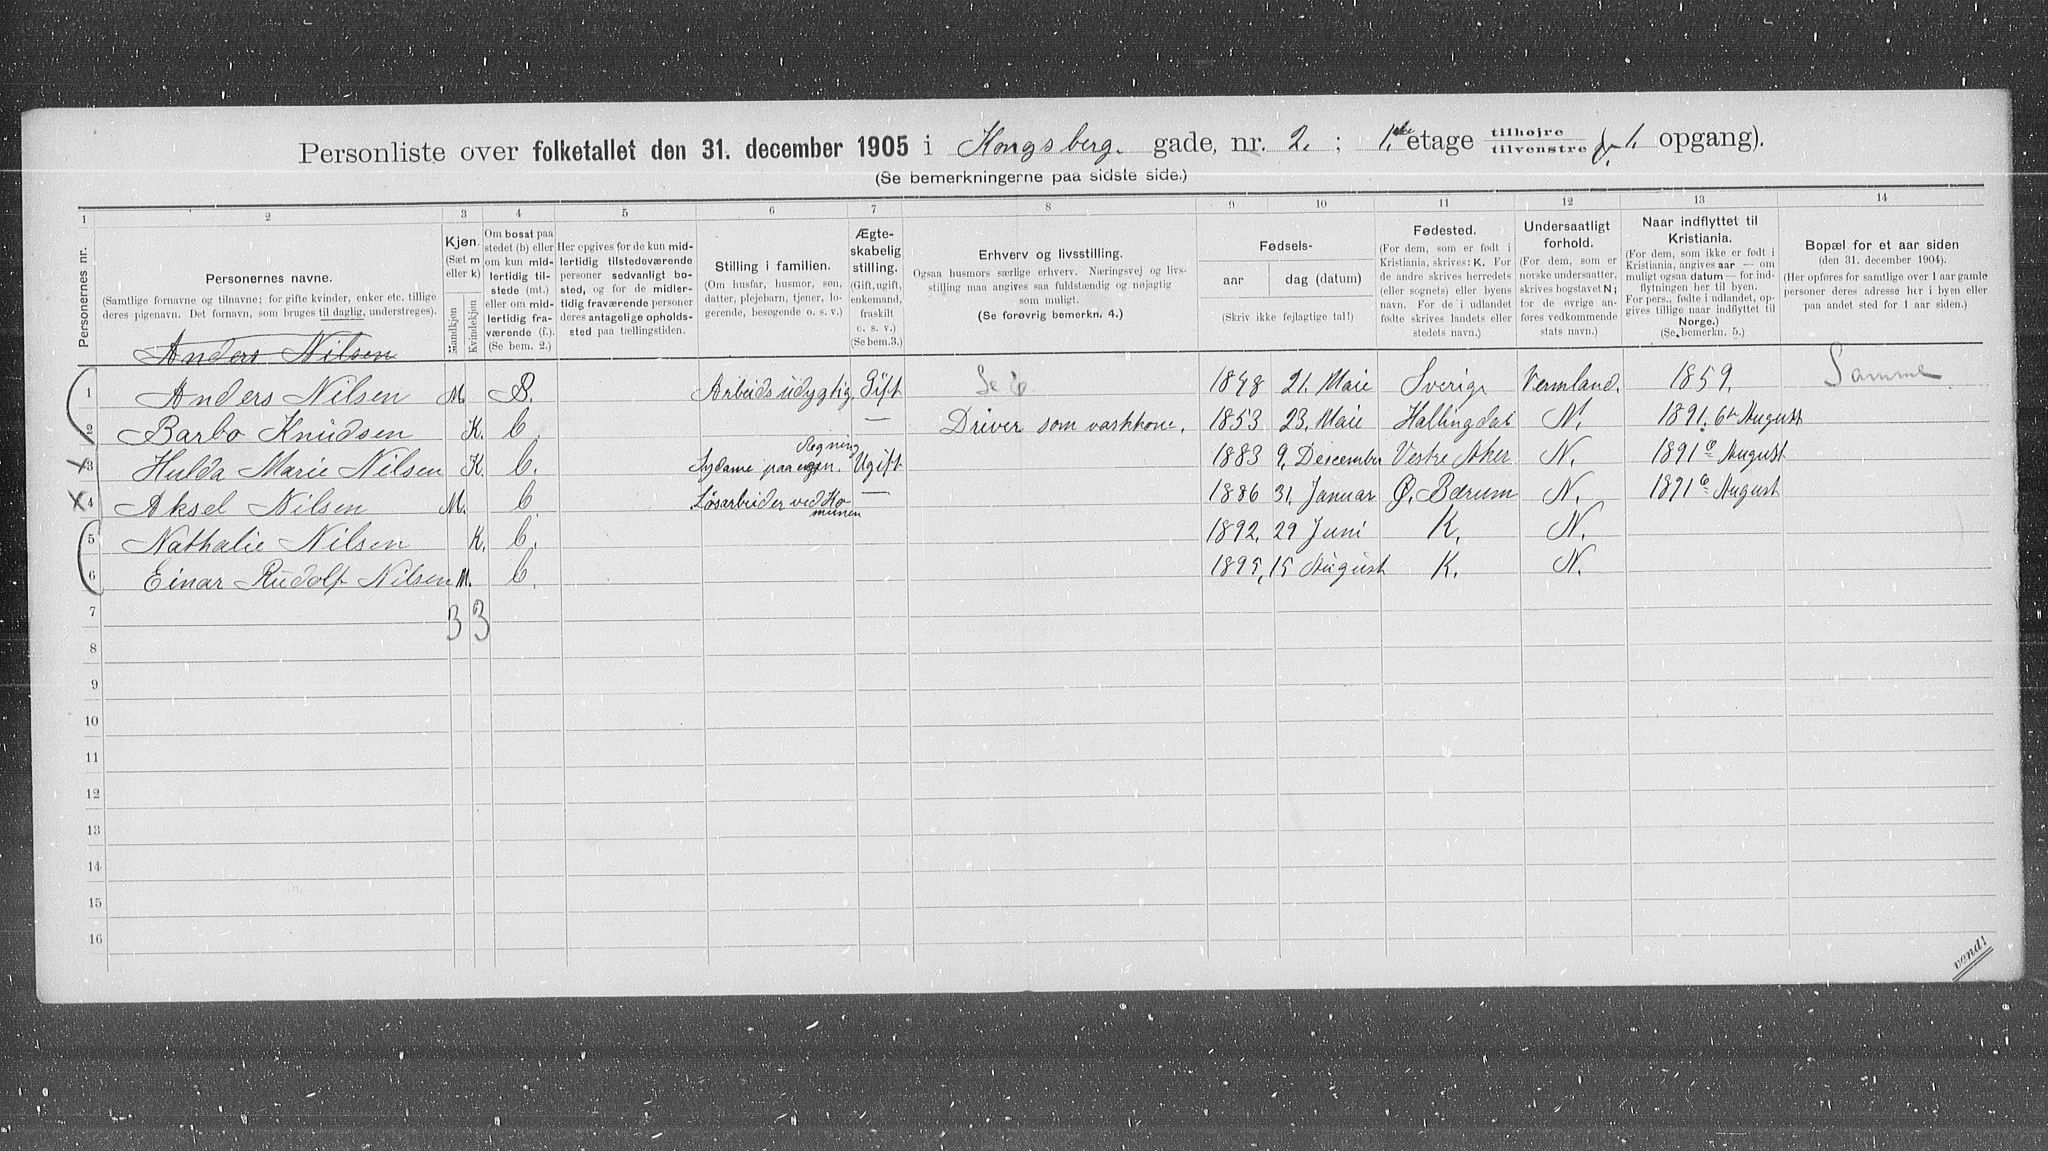 Personliste over folketallet den 31. december 1905 i Kongsberg. gade, nr. 2. ; 1.ste etage tilhøjre tilvenstre 1. opgang).
(Se bemerkningerne paa sidste side.)
1 2 3 4 5 6 7 8 9 10 11 12 13 14
Personernes nr.
Personernes navne.
(Samtlige fornavne og tilnavne; for gifte kvinder, enker etc. tillige deres pigenavn. Det fornavn, som bruges til daglig, understreges).
Kjøn.
(Sæt m eller k)
Mandkjøn
Kvindekjøn
Om bosat paa stedet (b) eller om kun midlertidig tilstede (mt.) eller om midlertidig fraværende (f.).
(Se bem. 2.)
Her opgives for de kun midlertidig tilstedeværende personer sedvanligt bosted, og for de midlertidig fraværende personer deres antagelige opholdssted paa tællingstiden.
Stilling i familien.
(Om husfar, husmor, søn, datter, plejebarn, tjener, logerende, besøgende o. s. v.)
Ægteskabelig stilling.
(Gift, ugift, enkemand, fraskilt o. s. v.)
(Se bem.3.)
Erhverv og livsstilling.
Ogsaa husmors særlige erhverv. Næringsvej og livsstilling maa angives saa fuldstændig og nøjagtig som muligt.
(Se forøvrig bemerkn. 4.)
Fødsels-
aar dag (datum)
(Skriv ikke fejlagtige tal!)
Fødested.
(For dem, som er født i Kristiania, skrives: K. For de andre skrives herredets (eller sognets) eller byens navn. For de i udlandet fødte skrives landets eller stedets navn.)
Undersaatligt forhold.
(For dem, som er norske undersaatter, skrives bogstavet N; for de øvrige anføres vedkommende stats navn.)
Naar indflyttet til Kristiania.
(For dem, som ikke er født i Kristiania, angives aar — om muligt ogsaa datum — for indflytningen her til byen. For pers., fødte i udlandet, opgives tillige naar indflyttet til Norge.)
(Se bemerkn. 5.)
Bopæl for et aar siden
(den 31. december 1904).
(Her opføres for samtlige over 1 aar gamle personer deres adresse her i byen eller paa andet sted for 1 aar siden.)
Anders Nilsen
1 Anders Nilsen M. B. Arbeidsudygtig Gift 1848 21. Maie Sverige Vermland. 1859. Samme
2 Barbo Knudsen K. b — Driver som vaskkone. 1853 23. Maie Hallingdal N. 1891. 6te August
3 Hulda Marie Nilsen K b. Sydame paa egen. Regning Ugift 1883 9. Desember Vestre Aker N. 1891 6 August
4 Aksel Nilsen M. b. Løsarbeider ved Komunen — 1886 31. Januar Ø. Bærum N. 1891 6 August
5 Nathalie Nilsen K. b. 1892. 29 Juni K. N.
6 Einar Rudolf Nilsen M. b. 1895, 15 August K. N.
7
3 3
8
9
10
11
12
13
14
15
16
vend!